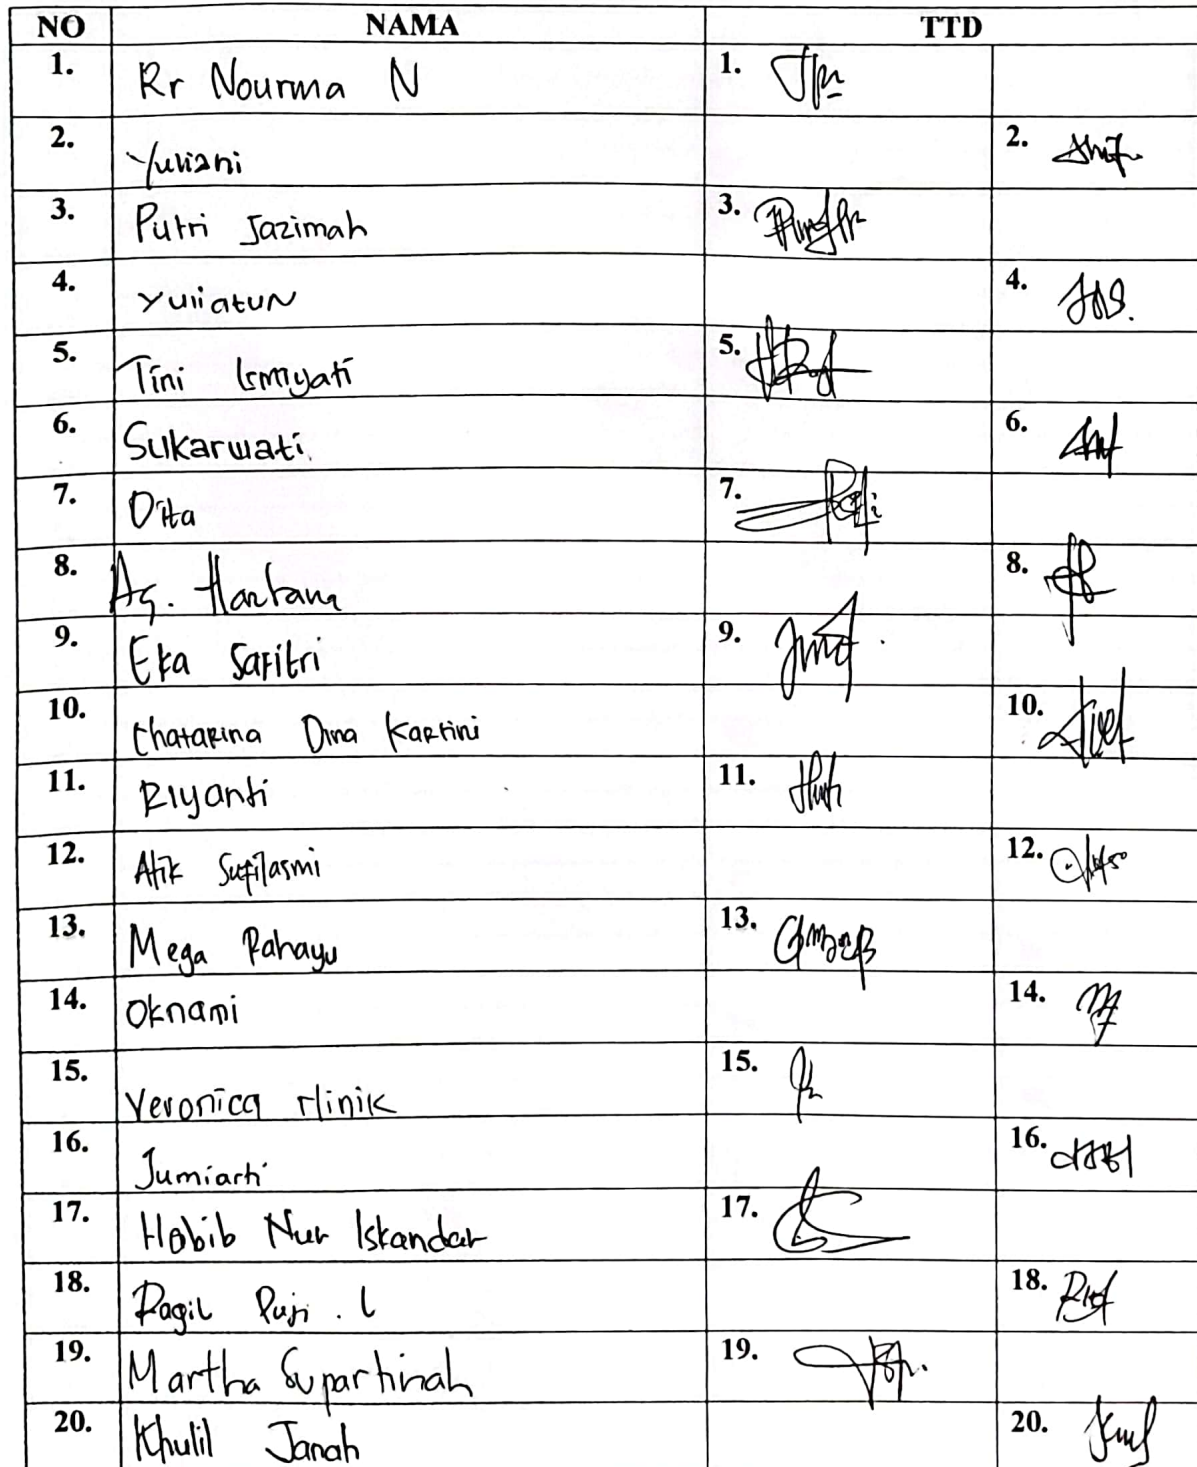 NO NAMA TTD
1. Rr Nourma N 1.
2. Yuliani 2.
3. Putri Jazimah 3.
4. Yuliatun 4.
5. Tini Ismiyati 5.
6. Sukarwati 6.
7. Dita 7.
8. Ag. Hartana 8.
9. Eka Safitri 9.
10. Chatarina Dina Kartini 10.
11. Riyanti 11.
12. Atik 12.
13. Mega Rahayu 13.
14. Oknami 14.
15. Veronica 15.
16. Jumiarti 16.
17. Habib Nur Iskandar 17.
18. Ragil Puji . L 18.
19. Martha Supartinah 19.
20. Khulil Janah 20.